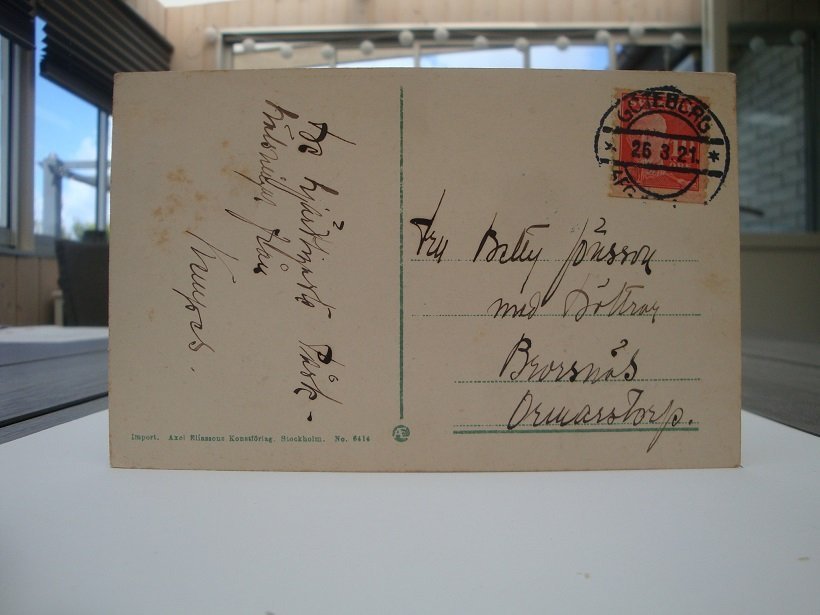 De hjärtligaste Påsk-
hälsningar från
GÖTEBORG
26 3 21.
Fru Betty Jönsson
med Döttrar
Brorsnäs
Ormarstorp.
Import. Axel Eliassons Konstförlag. Stockholm. No. 6414
AE